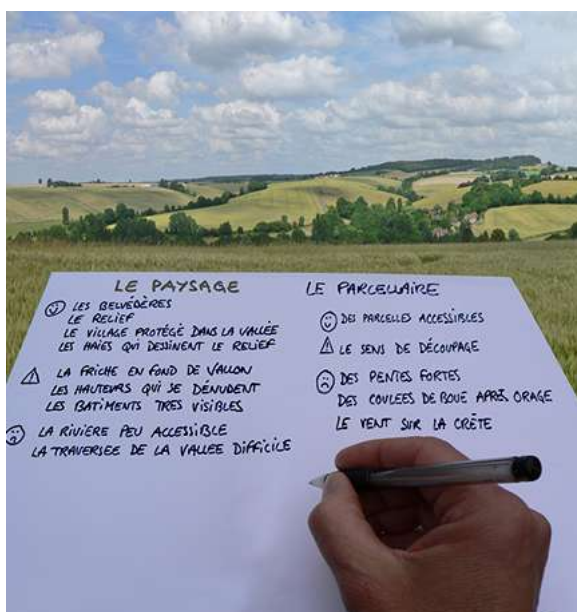 LE PAYSAGE
LES BELVÉDÈRES
LE RELIEF
LE VILLAGE PROTÉGÉ DANS LA VALLÉE
LES HAIES QUI DESSINENT LE RELIEF
LA FRICHE EN FOND DE VALLON
LES HAUTEURS QUI SE DÉNUDENT
LES BATIMENTS TRES VISIBLES
LA RIVIÈRE PEU ACCESSIBLE
LA TRAVERSEE DE LA VALLEE DIFFICILE
LE PARCELLAIRE
DES PARCELLES ACCESSIBLES
LE SENS DE DÉCOUPAGE
DES PENTES FORTES
DES COULEES DE BOUE APRÈS ORAGE
LE VENT SUR LA CRÊTE